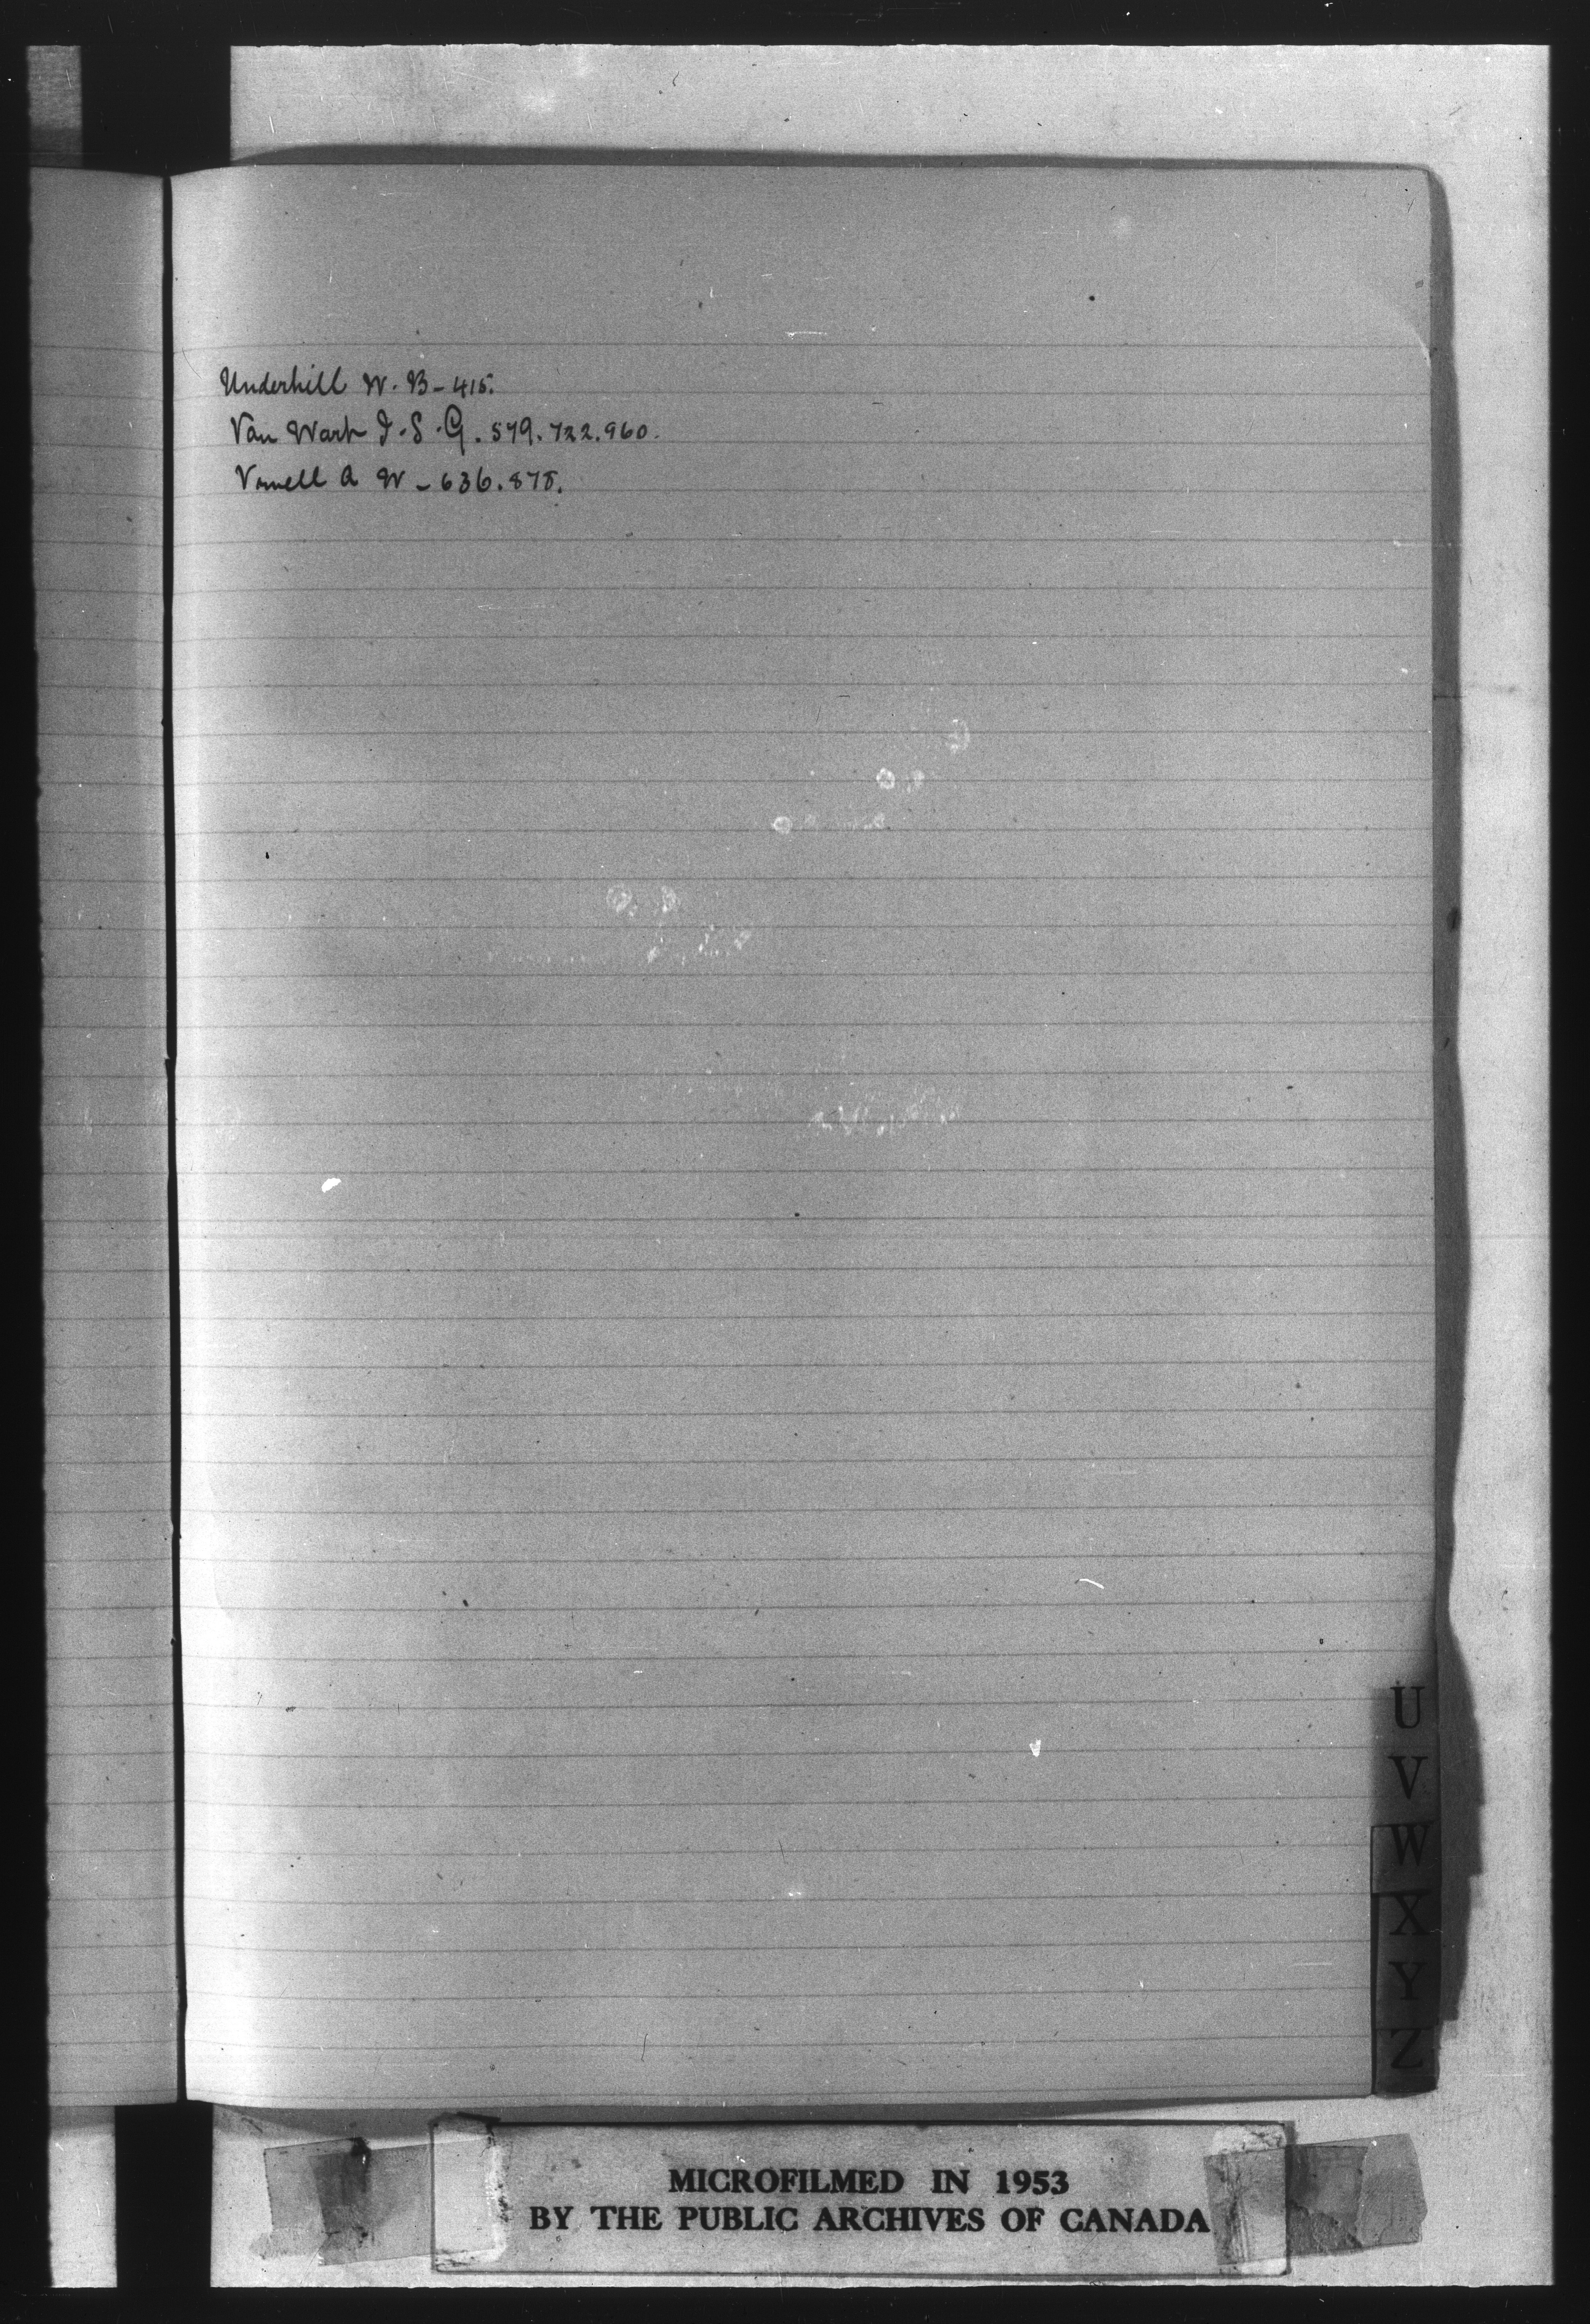 Underhill W. B - 415.
Van Wart J. S. G. 579. 722. 960.
Vowell A W - 636. 878.
U
V
W
X
Y
Z
MICROFILMED IN 1953
BY THE PUBLIC ARCHIVES OF CANADA